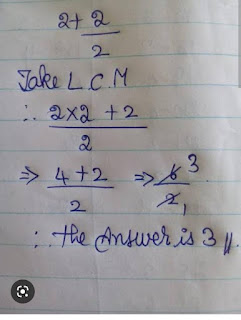 2+ 2/2
Take L C M
∴ 2×2 +2/2
⇒ 4+2/2 ⇒ 6 3/2 1
∴ the Answer is 3 //.